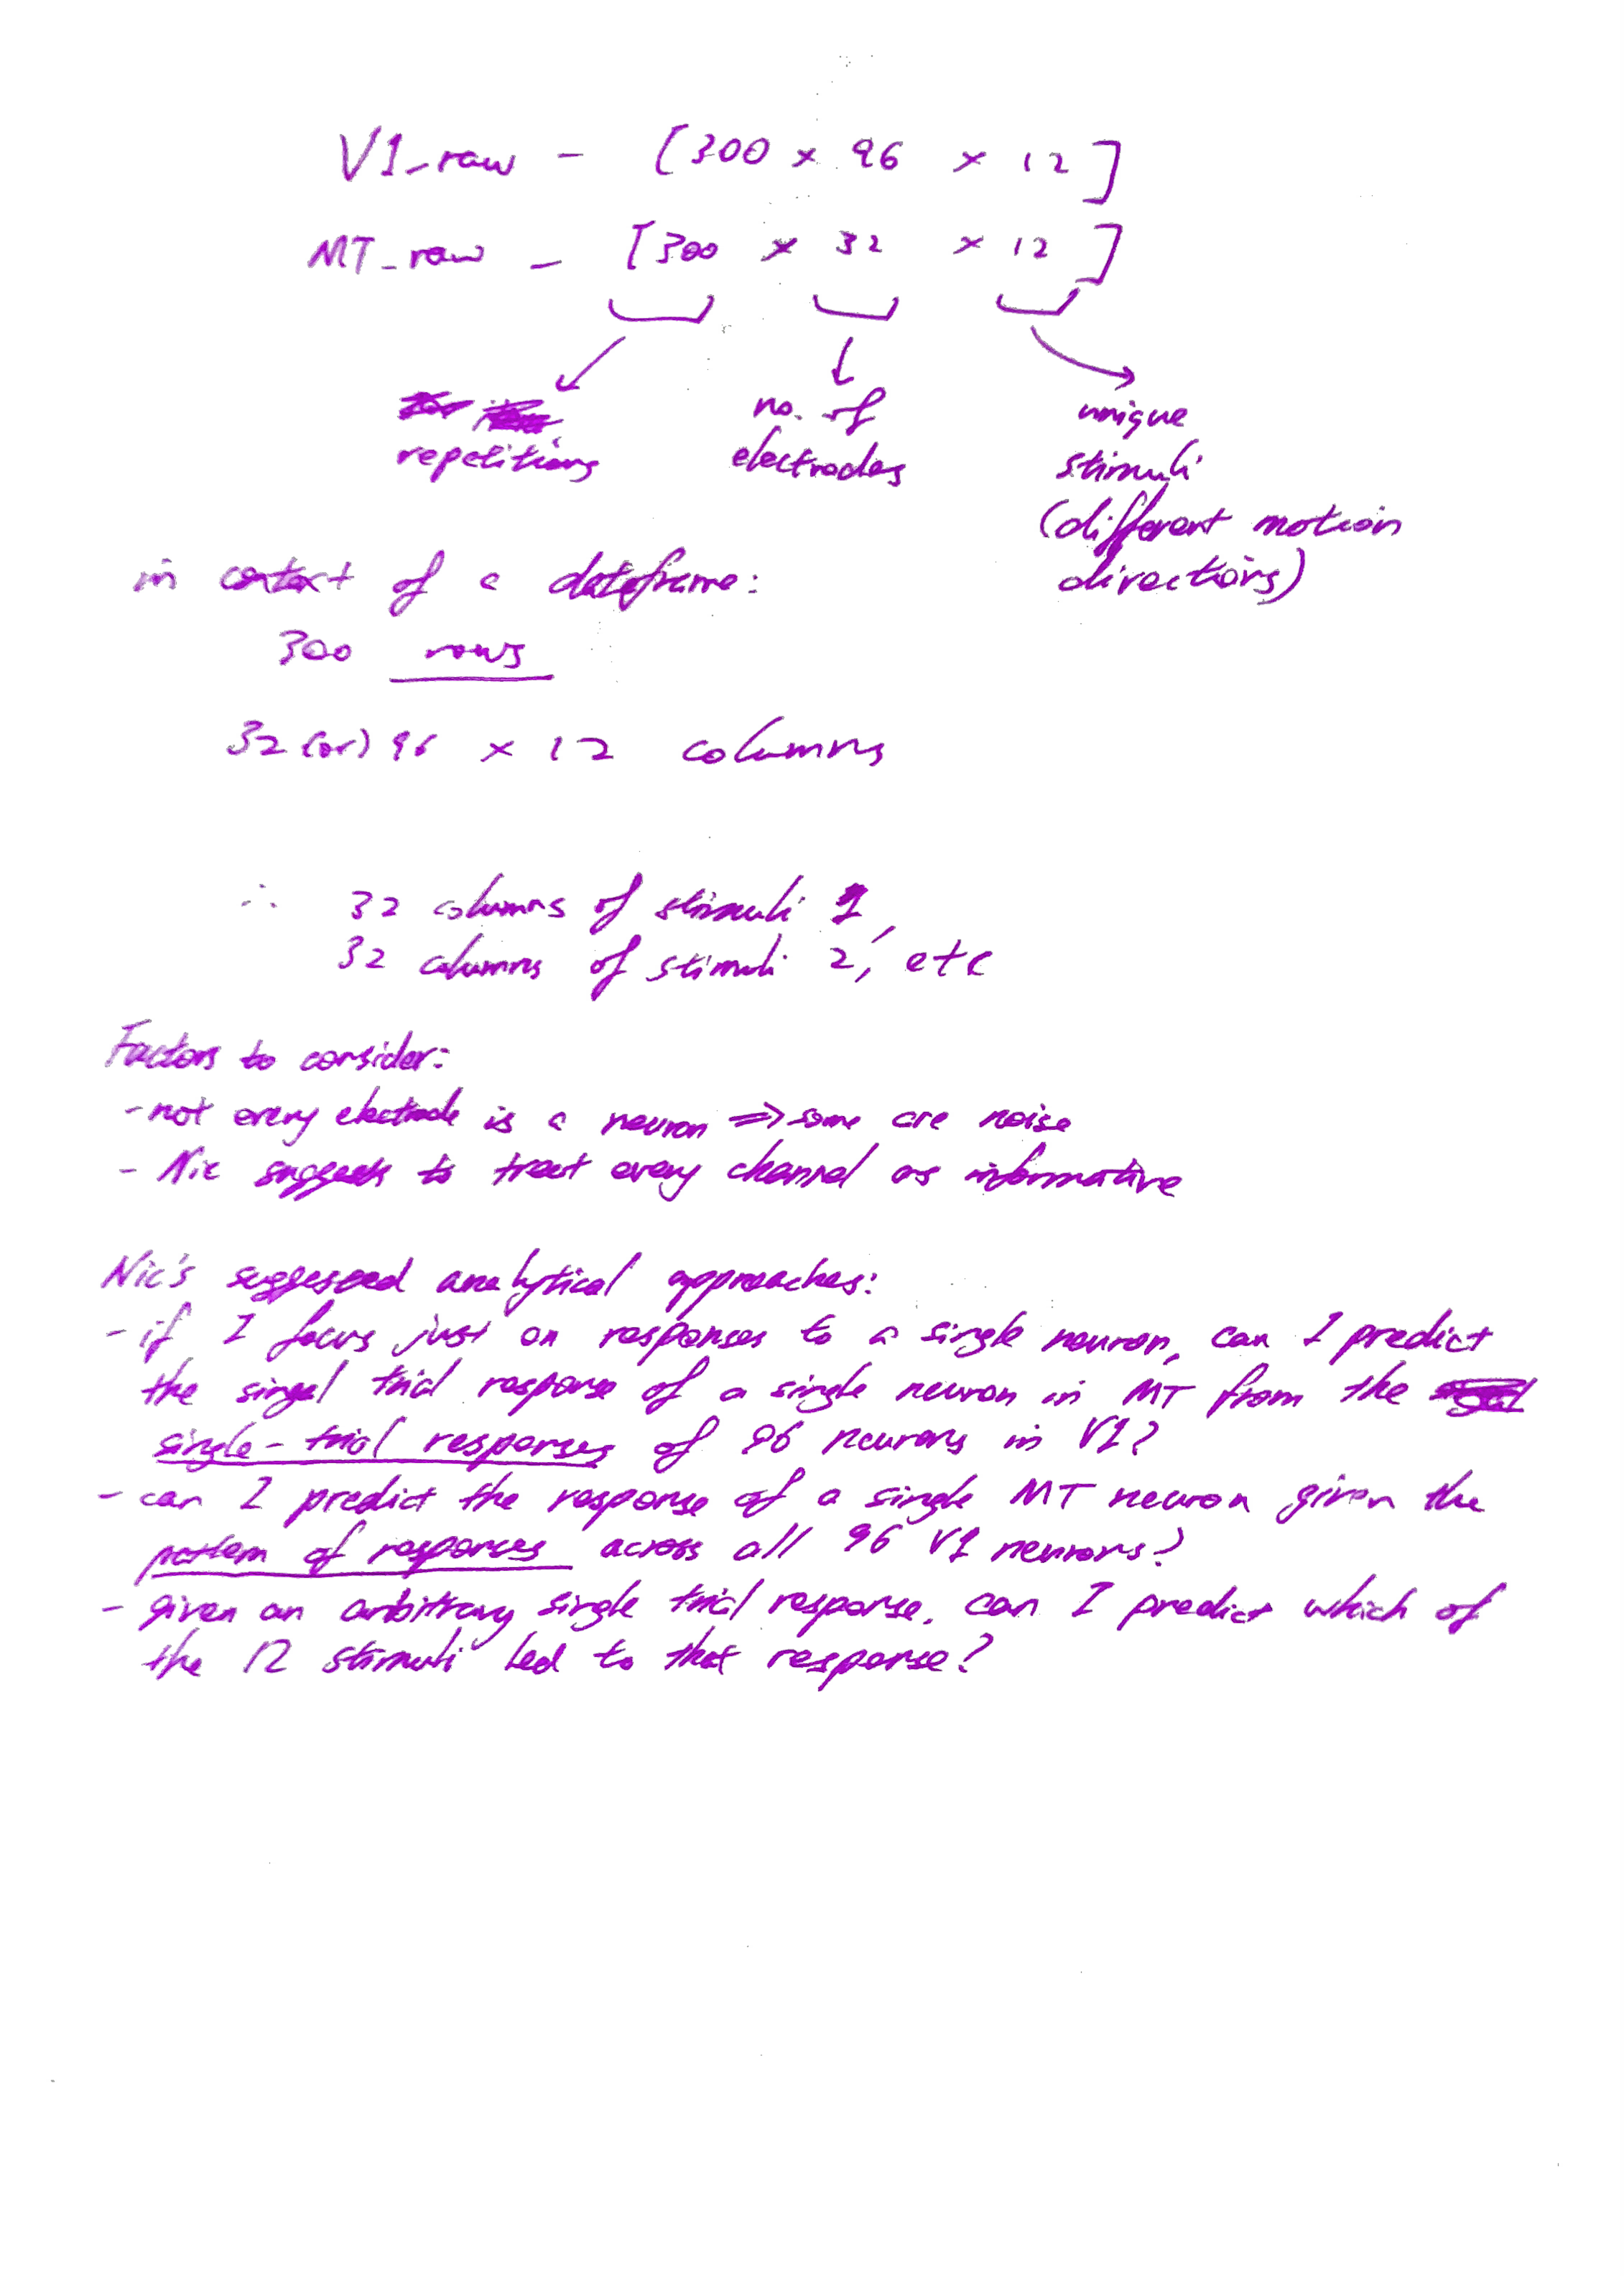 V1_raw - [300 x 96 x 12]
MT_raw - [300 x 32 x 12]
repetitions
no. of
electrodes
unique
stimuli
(different motion
directions)
in context of a dataframe:
300 rows
32 (or) 96 x 12 columns
∴ 32 columns of stimuli 1,
32 columns of stimuli 2, etc
Factors to consider:
- not every electrode is a neuron => some are noise
- Nic suggests to treat every channel as informative
Nic's suggested analytical approaches:
- if I focus just on responses to a single neuron, can I predict
the singel trial response of a single neuron in MT from the
single-trial responses of 96 neurons in V1?
- can I predict the response of a single MT neuron given the
pattern of responses across all 96 V1 neurons?
- given an arbitrary single trial response, can I predict which of
the 12 stimuli led to that response?